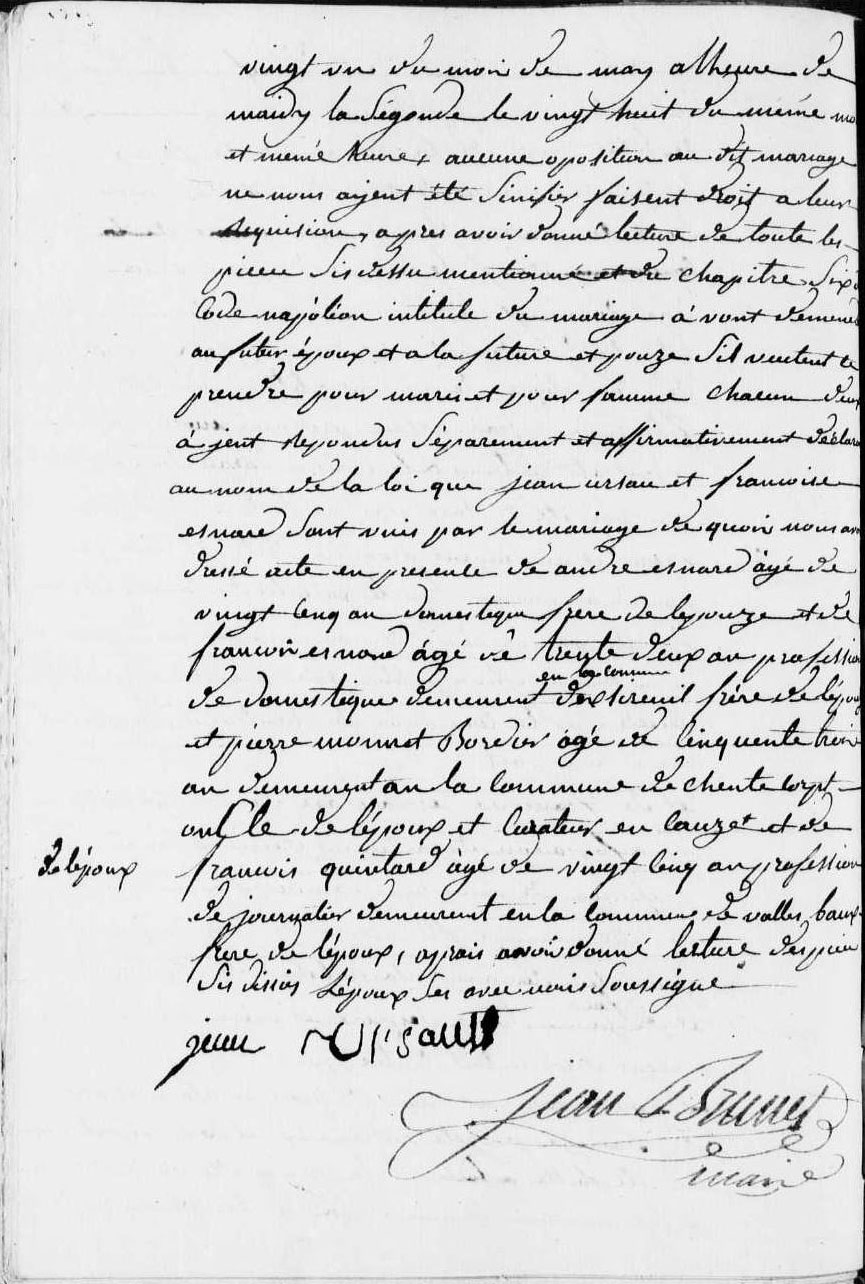 vingt un du mois de may a lheure de
maidy la ségonde le vingt huit du même mo
et même heure, aucune oposition au dit mariage
ne nous ayent été sinifier faisent droit a leur
requision, apres avoir donné lecture de toute les
piece sis dessu mentionné et du chapitre six
Code napoléon intitulé du mariage à vont demendé
au futur époux et a la future et pouze sil veulent se
prendre pour maris et pour famme chacun deux
à jent repondus séparement et affirmativement déclaro
au nom de la loi que jean ursau et francoise
esnard sont unis par le mariage de quoi nous avo
dressé acte en presence de andre esnard âgé de
vingt cenq an domestique frere de lepouze et de
francois esnard âgé de trente deux an profession
en la commune
de domestique demeurent dexsireuil frére de lépouz
et pierre monnet Bordier âgé de cinquente trois
an demeurent an la commune de chente corpt
onscle de lépoux et curateur en cauzet et de
de lépoux francois quintard âgé de vingt cenq an profession
de journalier demeurent en la commune de valles baux
frere de lépoux, aprais avoir donné lecture des piece
sis dissus Lépoux ses avec nous soussigné
jean Ursault
jean Brunet
maire